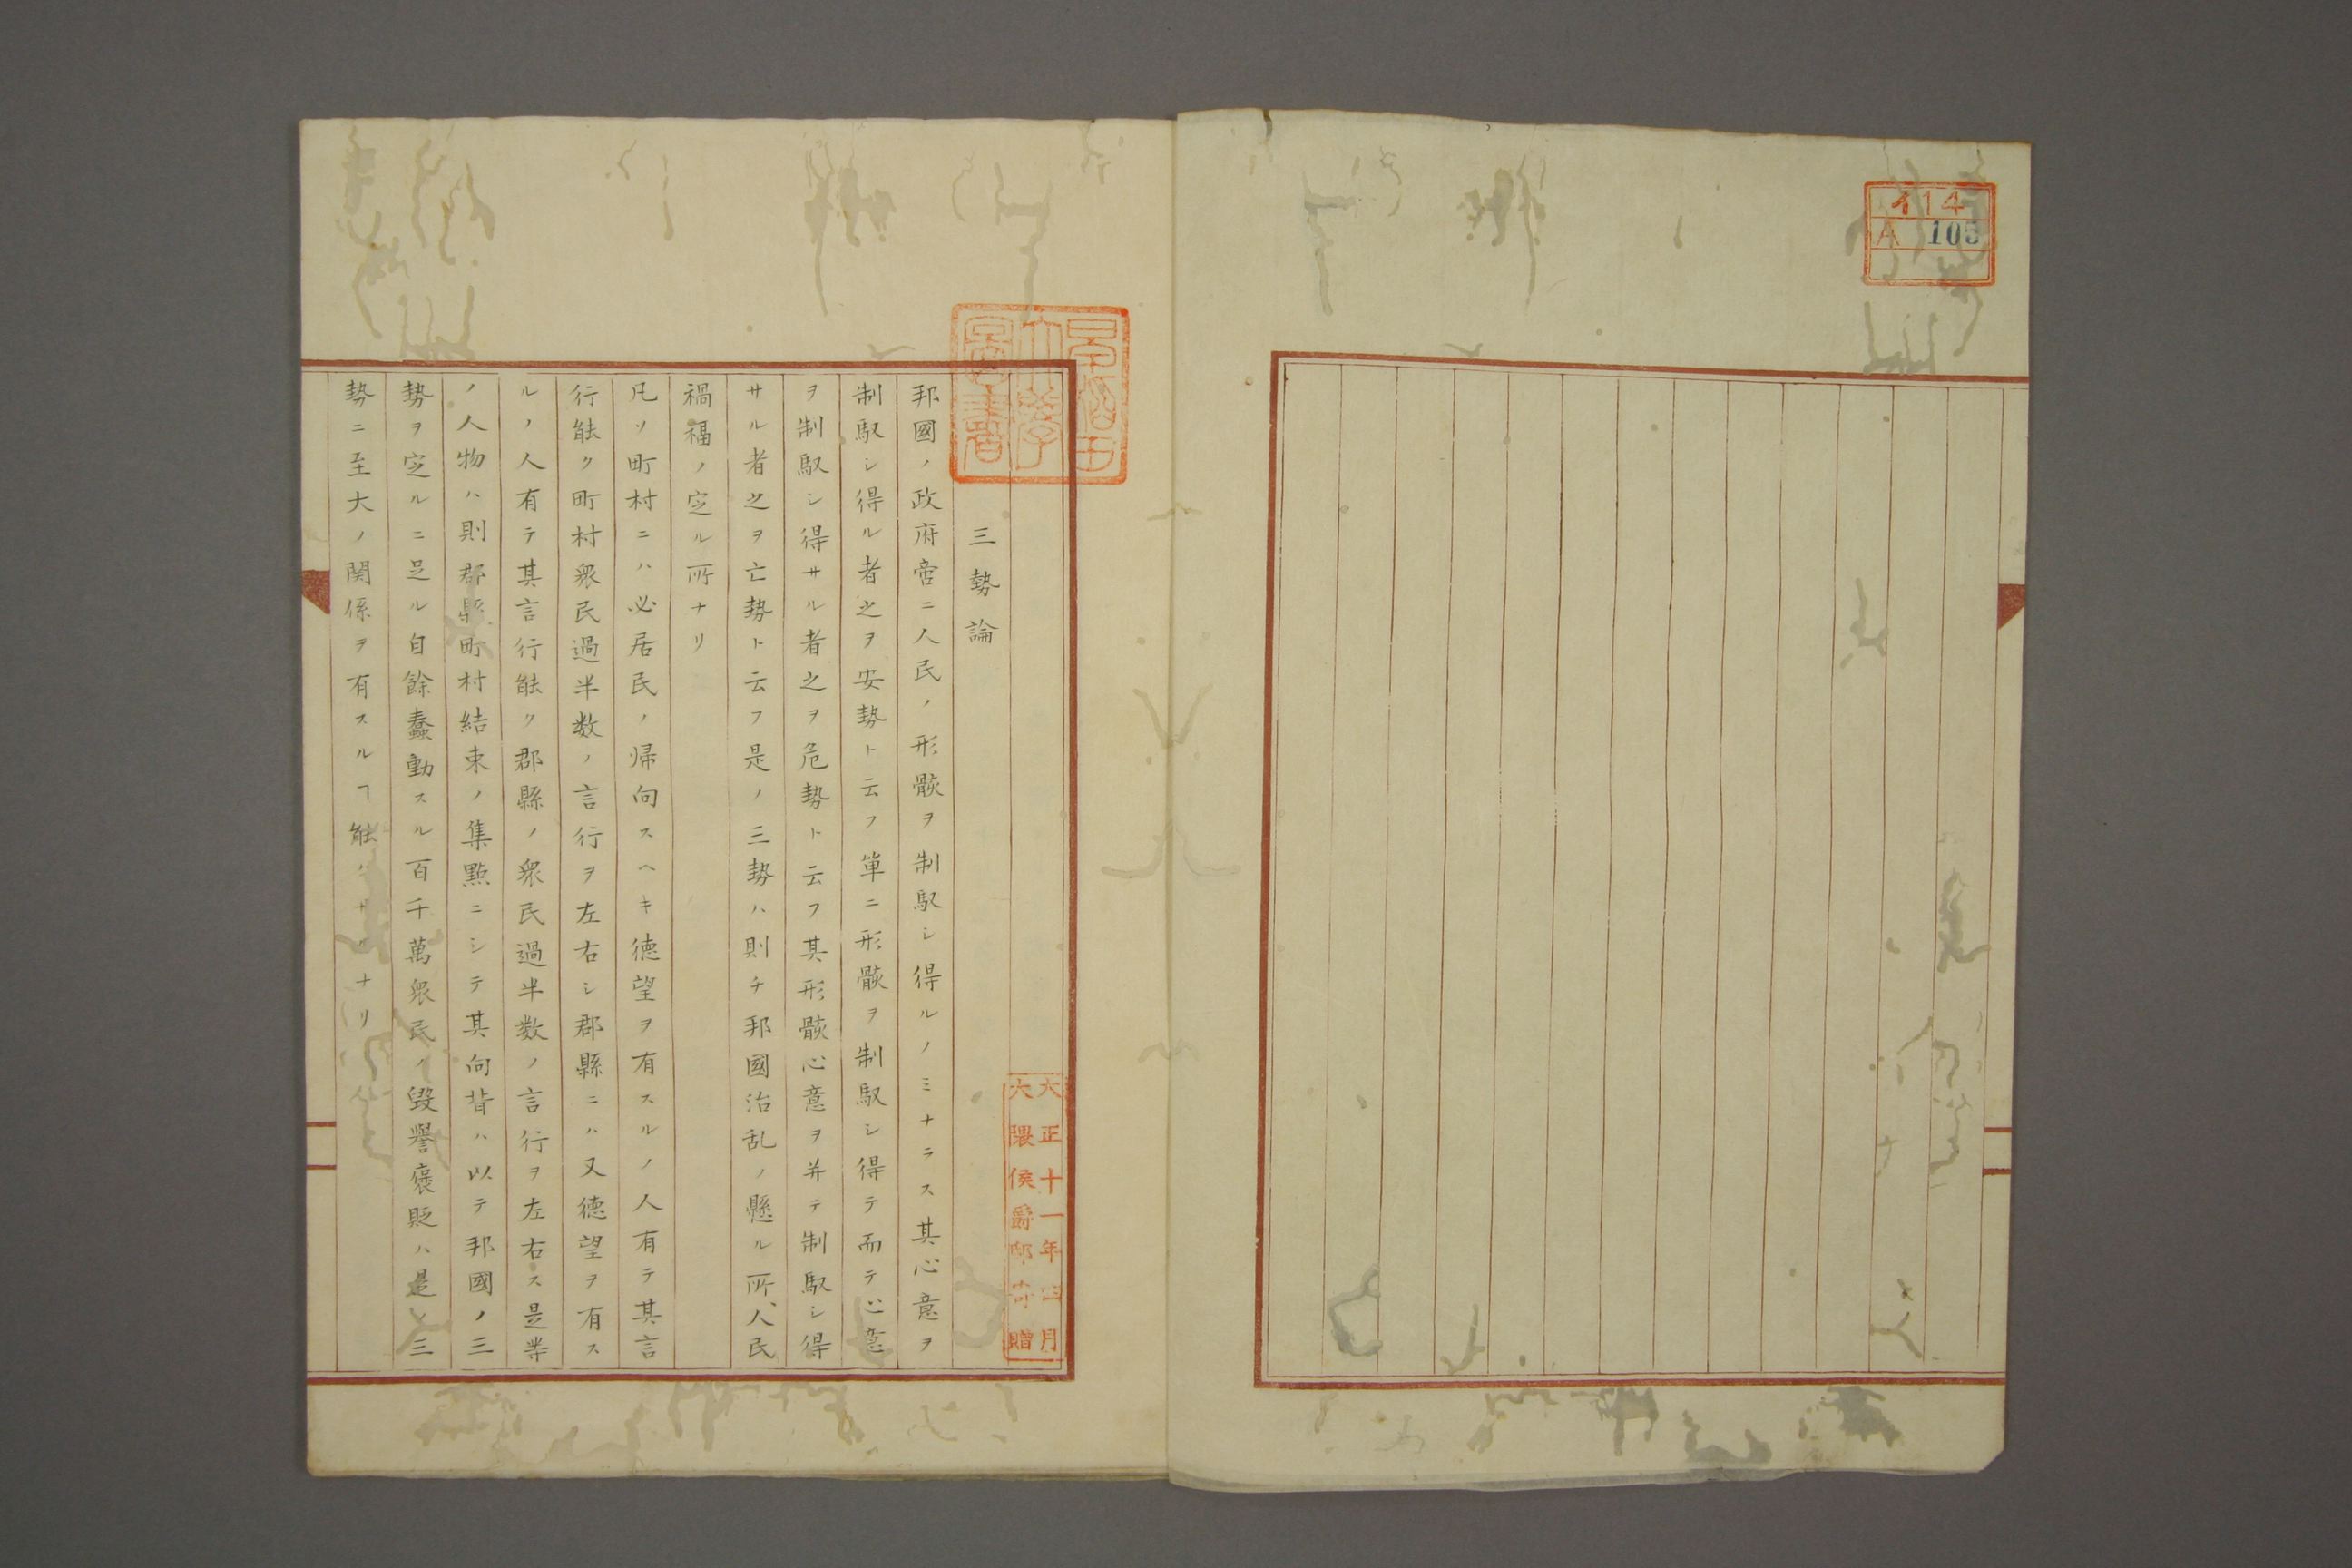 イ14
A 105
早稲田大學圖書
大正十一年四月
大隈侯爵邸寄贈
三勢論
邦國ノ政府啻ニ人民ノ形骸ヲ制馭シ得ルノミナラス其心意ヲ
制馭シ得ル者之ヲ安勢ト云フ単ニ形骸ヲ制馭シ得テ而テ心意
ヲ制馭シ得サル者之ヲ危勢ト云フ其形骸心意ヲ并テ制馭シ得
サル者之ヲ亡勢ト云フ是ノ三勢ハ則チ邦國治乱ノ懸ル所人民
禍福ノ定ル所ナリ
凡ソ町村ニハ必居民ノ帰向スヘキ徳望ヲ有スルノ人有テ其言
行能ク町村衆民過半数ノ言行ヲ左右シ郡縣ニハ又徳望ヲ有ス
ルノ人有テ其言行能ク郡縣ノ衆民過半数ノ言行ヲ左右ス是等
ノ人物ハ則郡縣町村結束ノ集點ニシテ其向背ハ以テ邦國ノ三
勢ヲ定ルニ足ル自餘蠢動スル百千萬衆民ノ毀譽褒貶ハ是レ三
勢ニ至大ノ関係ヲ有スルヿ能ハサルナリ